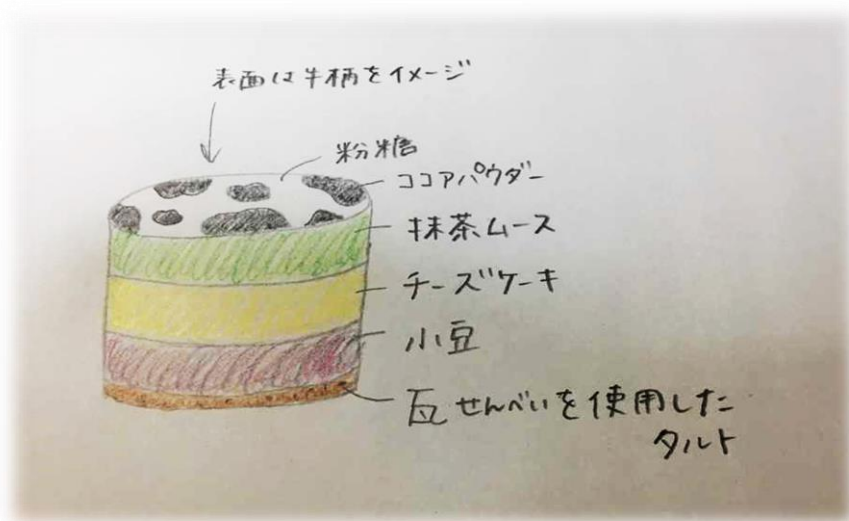 表面は牛柄をイメージ
粉糖
ココアパウダー
抹茶ムース
チーズケーキ
小豆
瓦せんべいを使用した
タルト